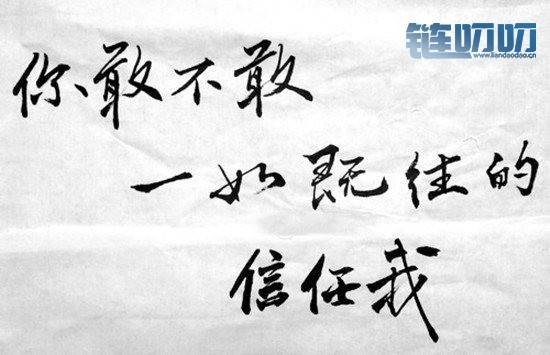 链叨叨
www.liandaodao.cn
你敢不敢
一如既往的
信任我